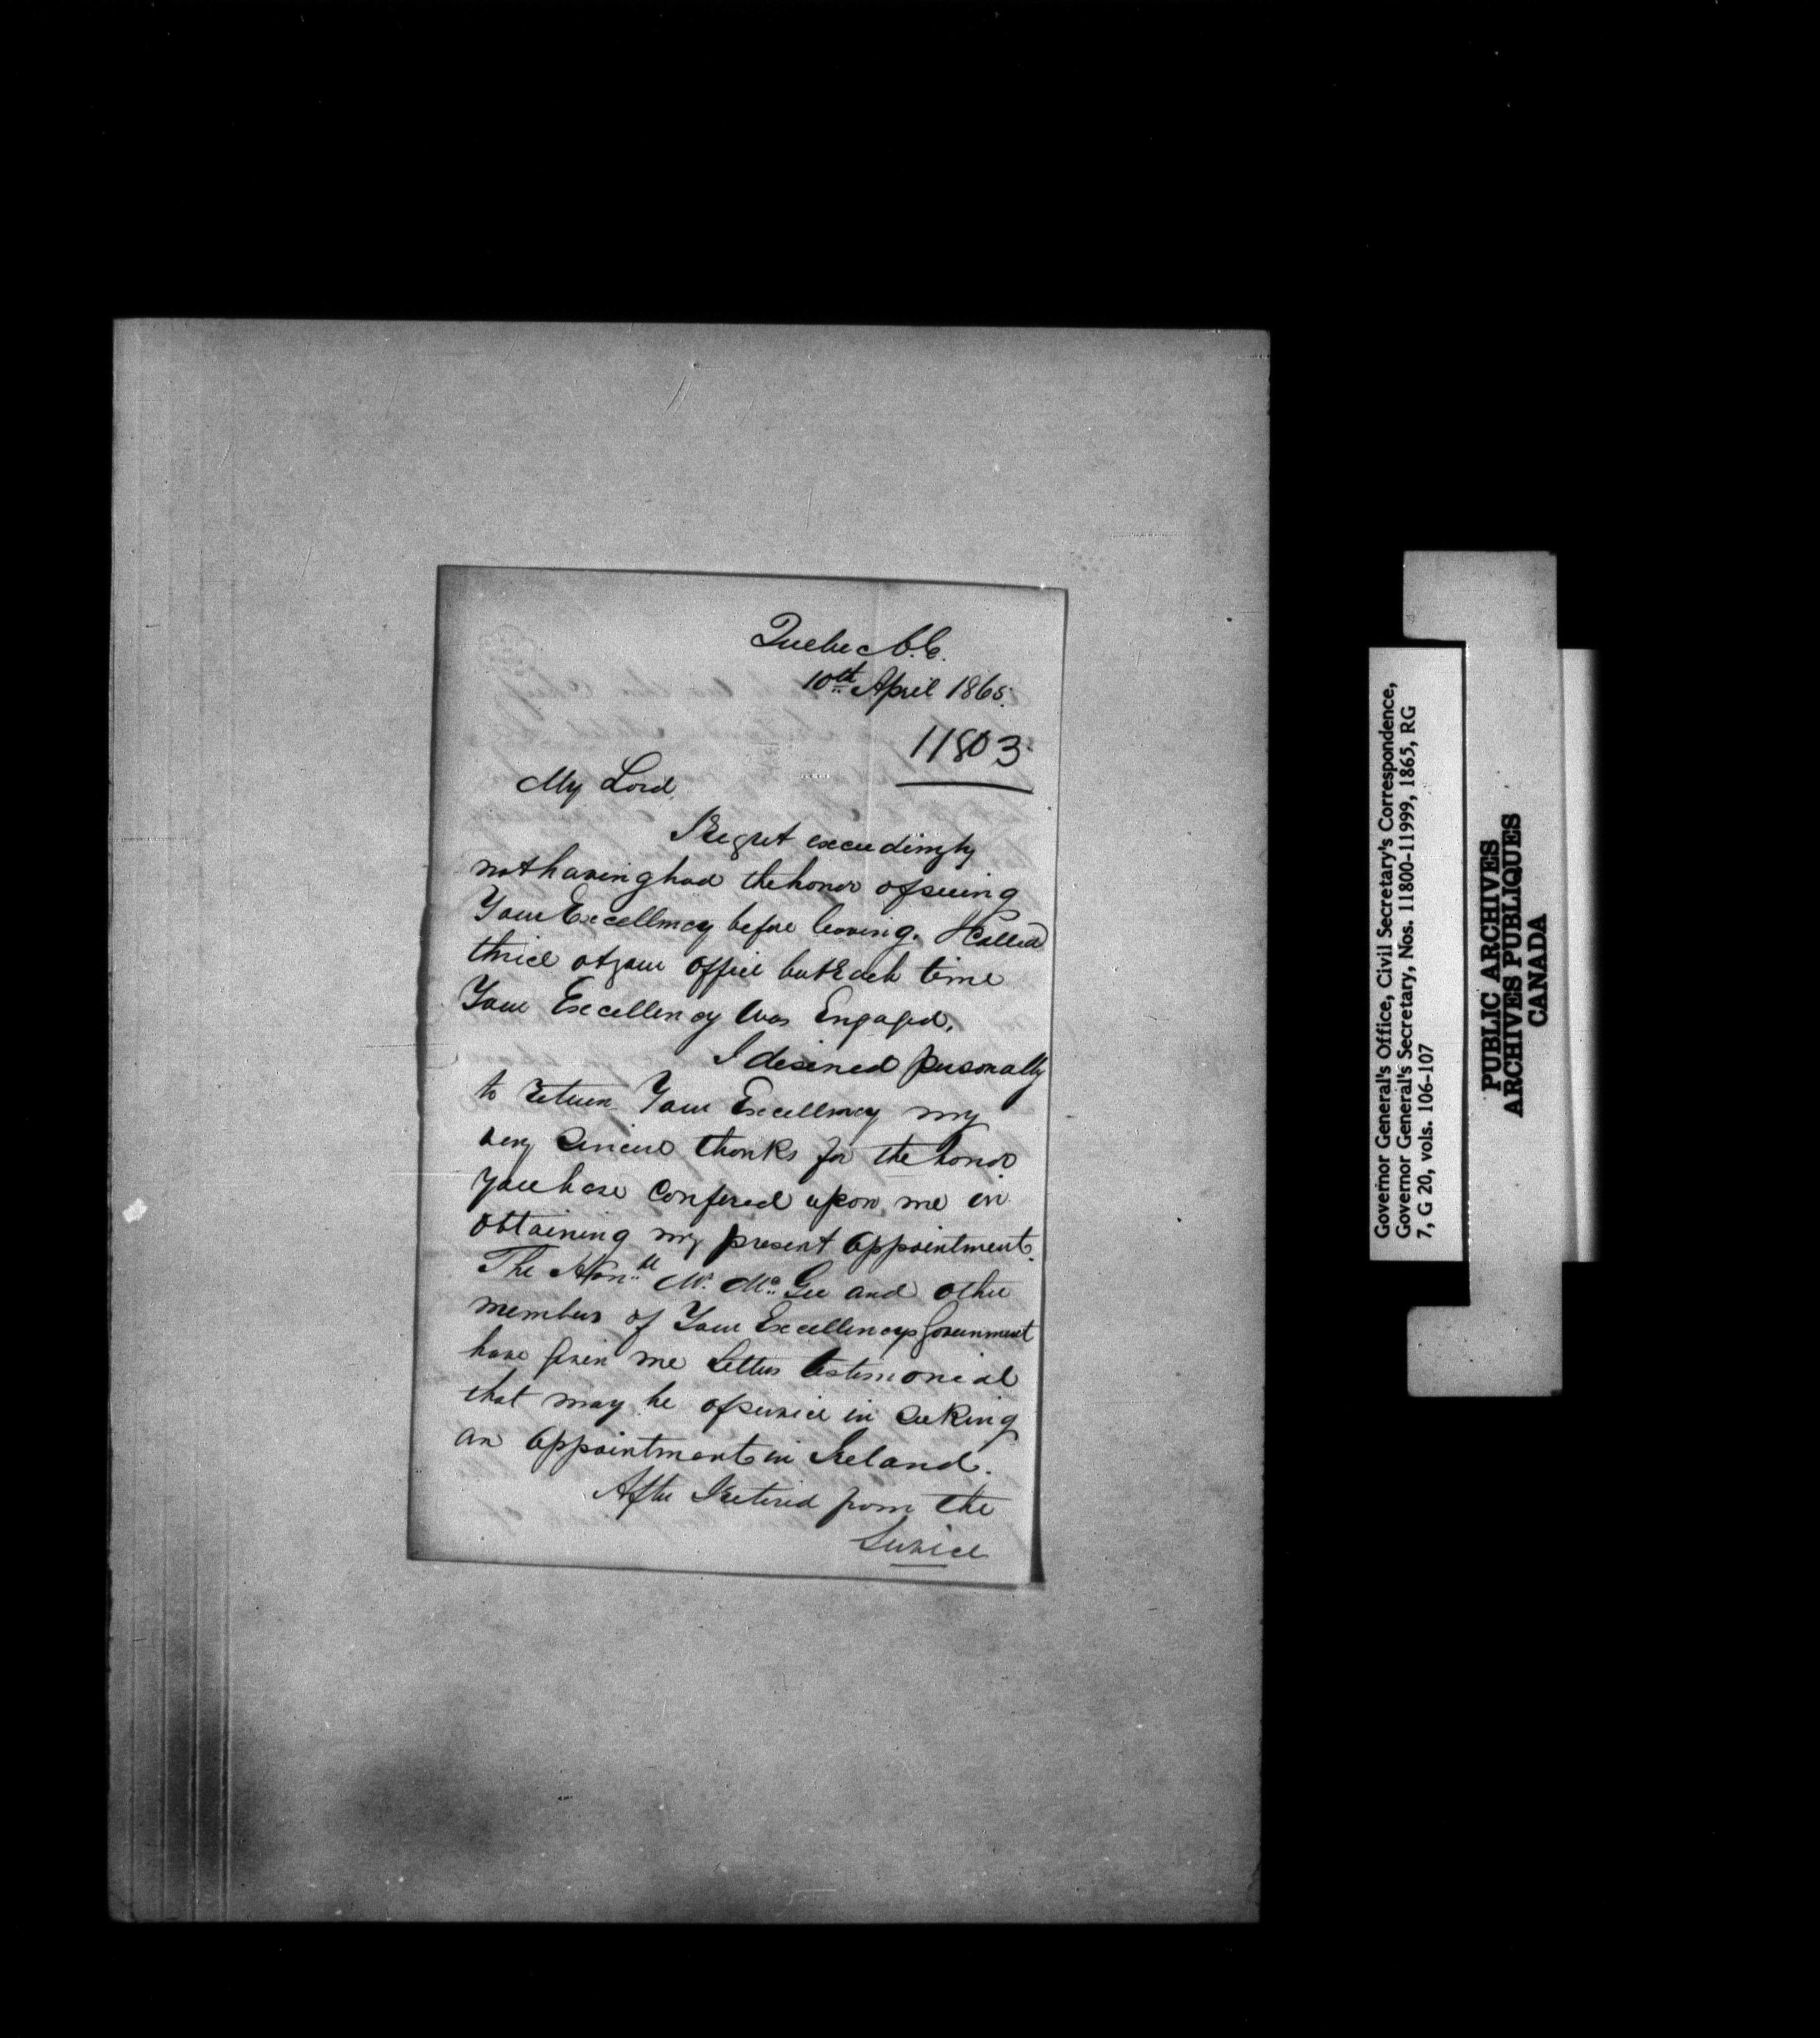 Quebec C.E.
10th April 1865.
11803
My Lord,
I Regret exceedingly
not having had the honor of seeing
Your Excellency before leaving. I Called
thrice at your Office but Each time
Your Excellency Was Engaged.
I desired personally
to return Your Excellency my
very Sincere thanks for the honor
you have Confered upon me in
Obtaining my present Appointment.
The Honble Mr. McGee and other
members of Your Excellencys Government
have given me Letters testimonial
that may be of service in Seeking
an Appointment in Ireland.
After I retired from the
Service
Governor General's Office, Civil Secretary's Correspondence,
Governor General's Secretary, Nos. 11800-11999, 1865, RG
7, G 20, vols. 106-107
PUBLIC ARCHIVES
ARCHIVES PUBLIQUES
CANADA